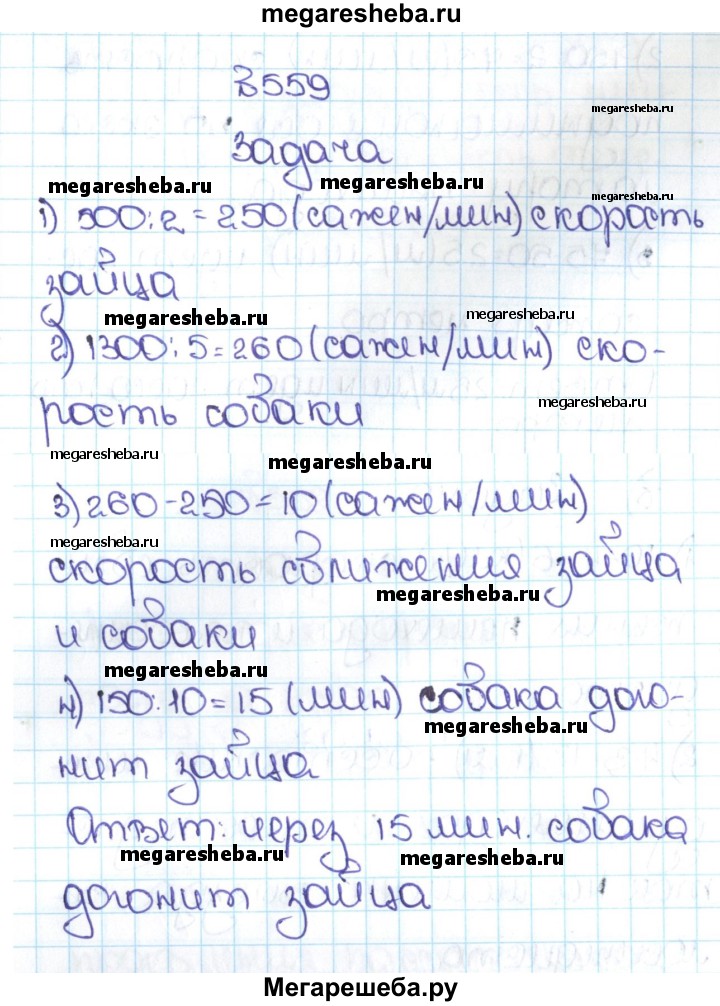 megaresheba.ru
В559
megaresheba.ru
задача
megaresheba.ru megaresheba.ru megaresheba.ru
1) 500:2=250(сажен/мин) скорость
зайца
megaresheba.ru megaresheba.ru
2) 1300:5=260(сажен/мин) ско-
рость собаки
megaresheba.ru
megaresheba.ru megaresheba.ru
3) 260-250=10(сажен/мин)
megaresheba.ru
скорость сближения зайца
megaresheba.ru
и собаки
megaresheba.ru
4) 150:10=15 (мин) собака дого-
megaresheba.ru
нит зайца
Ответ: через 15 мин. собака
megaresheba.ru megaresheba.ru
догонит зайца
Мегарешеба.ру